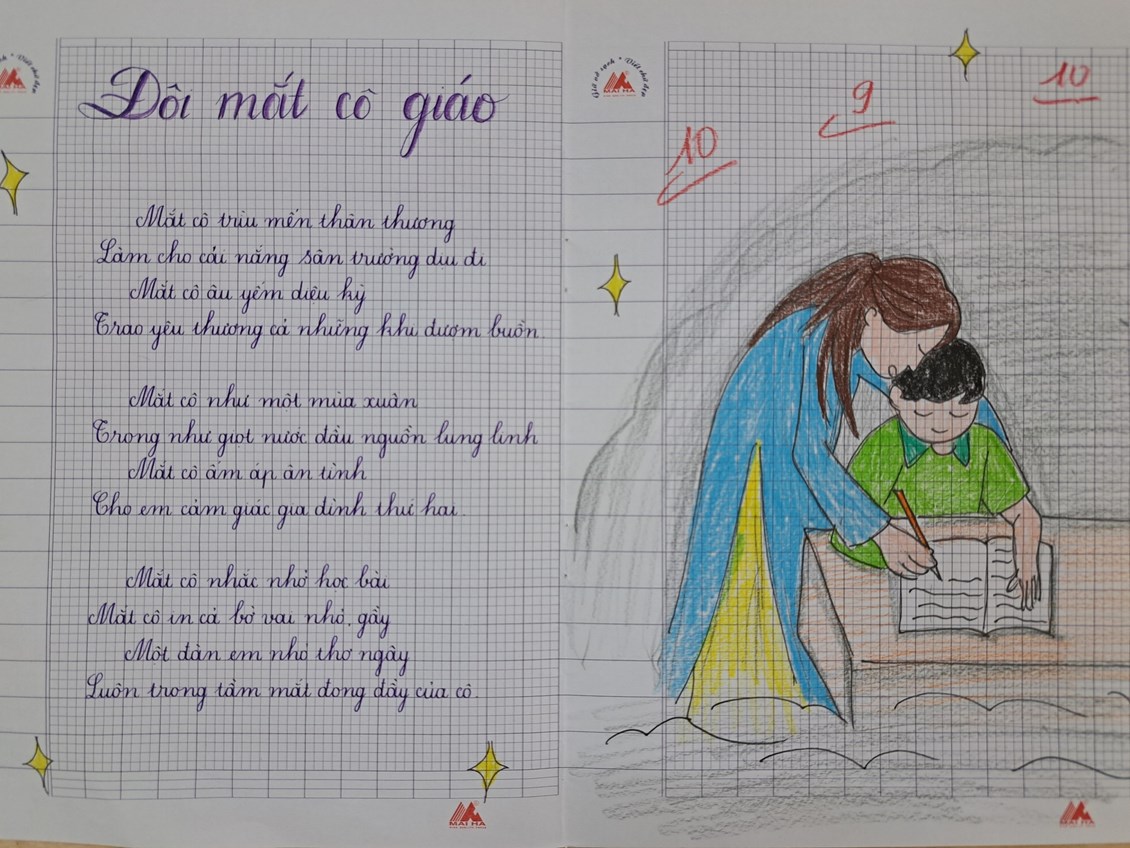 Đôi mắt cô giáo
Mắt cô trìu mến thân thương
Làm cho cái nắng sân trường dịu đi
Mắt cô âu yếm diệu kỳ
Trao yêu thương cả những khi đượm buồn.
Mắt cô như một mùa xuân
Trong như giọt nước đầu nguồn lung linh
Mắt cô ấm áp ân tình
Cho em cảm giác gia đình thứ hai.
Mắt cô nhắc nhở học bài
Mắt cô in cả bờ vai nhỏ, gầy
Một đàn em nhỏ thơ ngây
Luôn trong tầm mắt đong đầy của cô.
MAI HA
Giữ vở sạch • Viết chữ đẹp
MAI HA
10
9
10